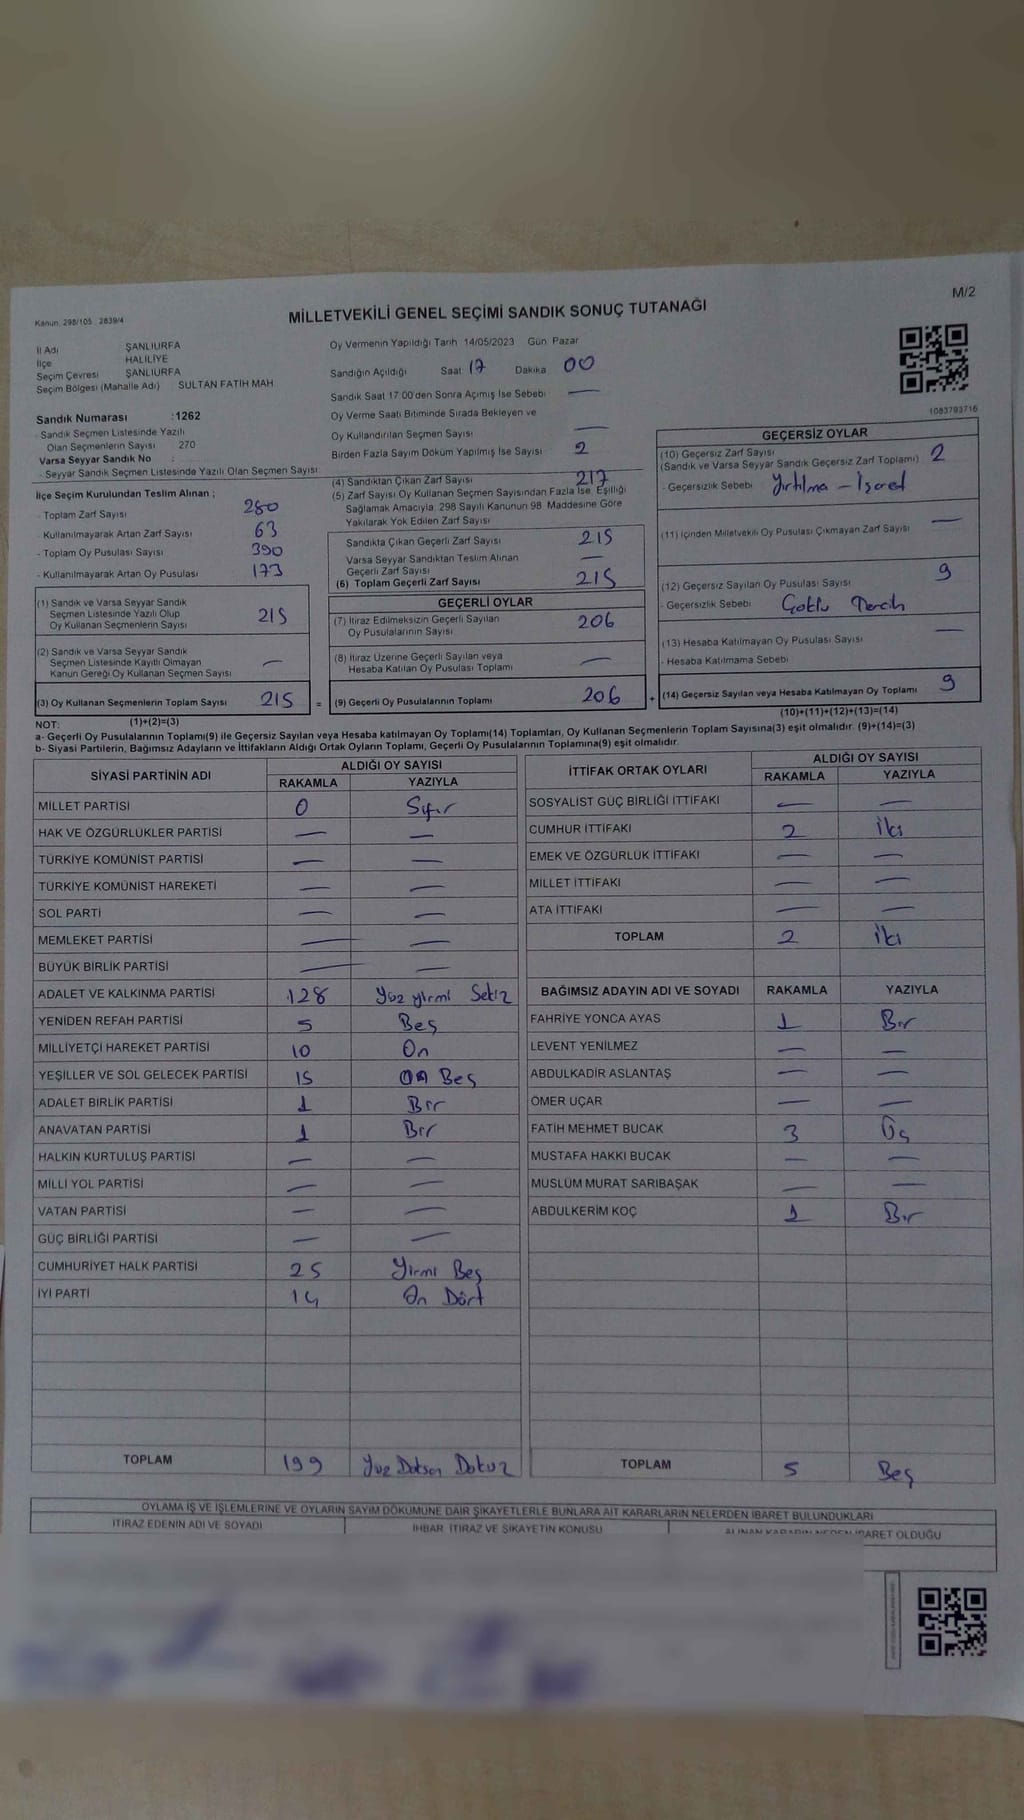 M/2
Kanun: 298/105 2839/4
MİLLETVEKİLİ GENEL SEÇİMİ SANDIK SONUÇ TUTANAĞI
İl Adı ŞANLIURFA
İlçe HALİLİYE
Seçim Çevresi ŞANLIURFA
Seçim Bölgesi (Mahalle Adı) SULTAN FATİH MAH.
Sandık Numarası :1262
- Sandık Seçmen Listesinde Yazılı
Olan Seçmenlerin Sayısı 270
Varsa Seyyar Sandık No :
- Seyyar Sandık Seçmen Listesinde Yazılı Olan Seçmen Sayısı:
Oy Vermenin Yapıldığı Tarih 14/05/2023 Gün Pazar
Sandığın Açıldığı Saat 17 Dakika 00
Sandık Saat 17:00'den Sonra Açımış İse Sebebi —
Oy Verme Saati Bitiminde Sırada Bekleyen ve
Oy Kullandırılan Seçmen Sayısı —
Birden Fazla Sayım Döküm Yapılmış İse Sayısı 2
1083793716
İlçe Seçim Kurulundan Teslim Alınan ;
- Toplam Zarf Sayısı 280
- Kullanılmayarak Artan Zarf Sayısı 63
- Toplam Oy Pusulası Sayısı 390
- Kullanılmayarak Artan Oy Pusulası 173
(1) Sandık ve Varsa Seyyar Sandık
Seçmen Listesinde Yazılı Olup
Oy Kullanan Seçmenlerin Sayısı 215
(2) Sandık ve Varsa Seyyar Sandık
Seçmen Listesinde Kayıtlı Olmayan
Kanun Gereği Oy Kullanan Seçmen Sayısı —
(3) Oy Kullanan Seçmenlerin Toplam Sayısı 215 =
(4) Sandıktan Çıkan Zarf Sayısı 217
(5) Zarf Sayısı Oy Kullanan Seçmen Sayısından Fazla İse, Eşitliği
Sağlamak Amacıyla, 298 Sayılı Kanunun 98. Maddesine Göre
Yakılarak Yok Edilen Zarf Sayısı
Sandıkta Çıkan Geçerli Zarf Sayısı 215
Varsa Seyyar Sandıktan Teslim Alınan
Geçerli Zarf Sayısı —
(6) Toplam Geçerli Zarf Sayısı 215
GEÇERLİ OYLAR
(7) İtiraz Edilmeksizin Geçerli Sayılan
Oy Pusulalarının Sayısı 206
(8) İtiraz Üzerine Geçerli Sayılan veya
Hesaba Katılan Oy Pusulası Toplamı —
(9) Geçerli Oy Pusulalarının Toplamı 206 +
GEÇERSİZ OYLAR
(10) Geçersiz Zarf Sayısı
(Sandık ve Varsa Seyyar Sandık Geçersiz Zarf Toplamı) 2
- Geçersizlik Sebebi Yırtılma - İşaret
(11) İçinden Milletvekili Oy Pusulası Çıkmayan Zarf Sayısı —
(12) Geçersiz Sayılan Oy Pusulası Sayısı 9
- Geçersizlik Sebebi Çoklu Tercih
(13) Hesaba Katılmayan Oy Pusulası Sayısı —
- Hesaba Katılmama Sebebi
(14) Geçersiz Sayılan veya Hesaba Katılmayan Oy Toplamı 9
NOT: (1)+(2)=(3)
(10)+(11)+(12)+(13)=(14)
a- Geçerli Oy Pusulalarının Toplamı(9) ile Geçersiz Sayılan veya Hesaba katılmayan Oy Toplamı(14) Toplamları, Oy Kullanan Seçmenlerin Toplam Sayısına(3) eşit olmalıdır. (9)+(14)=(3)
b- Siyasi Partilerin, Bağımsız Adayların ve İttifakların Aldığı Ortak Oyların Toplamı, Geçerli Oy Pusulalarının Toplamına(9) eşit olmalıdır.
SİYASİ PARTİNİN ADI ALDIĞI OY SAYISI
RAKAMLA YAZIYLA
MİLLET PARTİSİ 0 Sıfır
HAK VE ÖZGÜRLÜKLER PARTİSİ — —
TÜRKİYE KOMÜNİST PARTİSİ — —
TÜRKİYE KOMÜNİST HAREKETİ — —
SOL PARTİ — —
MEMLEKET PARTİSİ — —
BÜYÜK BİRLİK PARTİSİ — —
ADALET VE KALKINMA PARTİSİ 128 Yüz yirmi Sekiz
YENİDEN REFAH PARTİSİ 5 Beş
MİLLİYETÇİ HAREKET PARTİSİ 10 On
YEŞİLLER VE SOL GELECEK PARTİSİ 15 On Beş
ADALET BİRLİK PARTİSİ 1 Bir
ANAVATAN PARTİSİ 1 Bir
HALKIN KURTULUŞ PARTİSİ — —
MİLLİ YOL PARTİSİ — —
VATAN PARTİSİ — —
GÜÇ BİRLİĞİ PARTİSİ — —
CUMHURİYET HALK PARTİSİ 25 Yirmi Beş
İYİ PARTİ 14 On Dört
TOPLAM 199 Yüz Doksan Dokuz
İTTİFAK ORTAK OYLARI ALDIĞI OY SAYISI
RAKAMLA YAZIYLA
SOSYALİST GÜÇ BİRLİĞİ İTTİFAKI — —
CUMHUR İTTİFAKI 2 İki
EMEK VE ÖZGÜRLÜK İTTİFAKI — —
MİLLET İTTİFAKI — —
ATA İTTİFAKI — —
TOPLAM 2 İki
BAĞIMSIZ ADAYIN ADI VE SOYADI RAKAMLA YAZIYLA
FAHRİYE YONCA AYAS 1 Bir
LEVENT YENİLMEZ — —
ABDULKADİR ASLANTAŞ — —
ÖMER UÇAR — —
FATİH MEHMET BUCAK 3 Üç
MUSTAFA HAKKI BUCAK — —
MÜSLÜM MURAT SARIBAŞAK — —
ABDULKERİM KOÇ 1 Bir
TOPLAM 5 Beş
OYLAMA İŞ VE İŞLEMLERİNE VE OYLARIN SAYIM DÖKÜMÜNE DAİR ŞİKAYETLERLE BUNLARA AİT KARARLARIN NELERDEN İBARET BULUNDUKLARI
İTİRAZ EDENİN ADI VE SOYADI İHBAR, İTİRAZ VE ŞİKAYETİN KONUSU ALINAN KARARIN NEDEN İBARET OLDUĞU